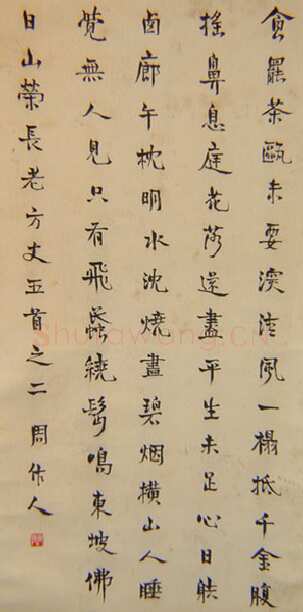 食罷茶甌未要深清風一榻抵千金腹
搖鼻息庭花落還盡平生未足心日射
回廊午枕明水沈燒盡碧烟橫山人睡
覺無人見只有飛蟁繞鬢鳴東坡佛
日山榮長老方丈五首之二 周作人
Shufawang.CN